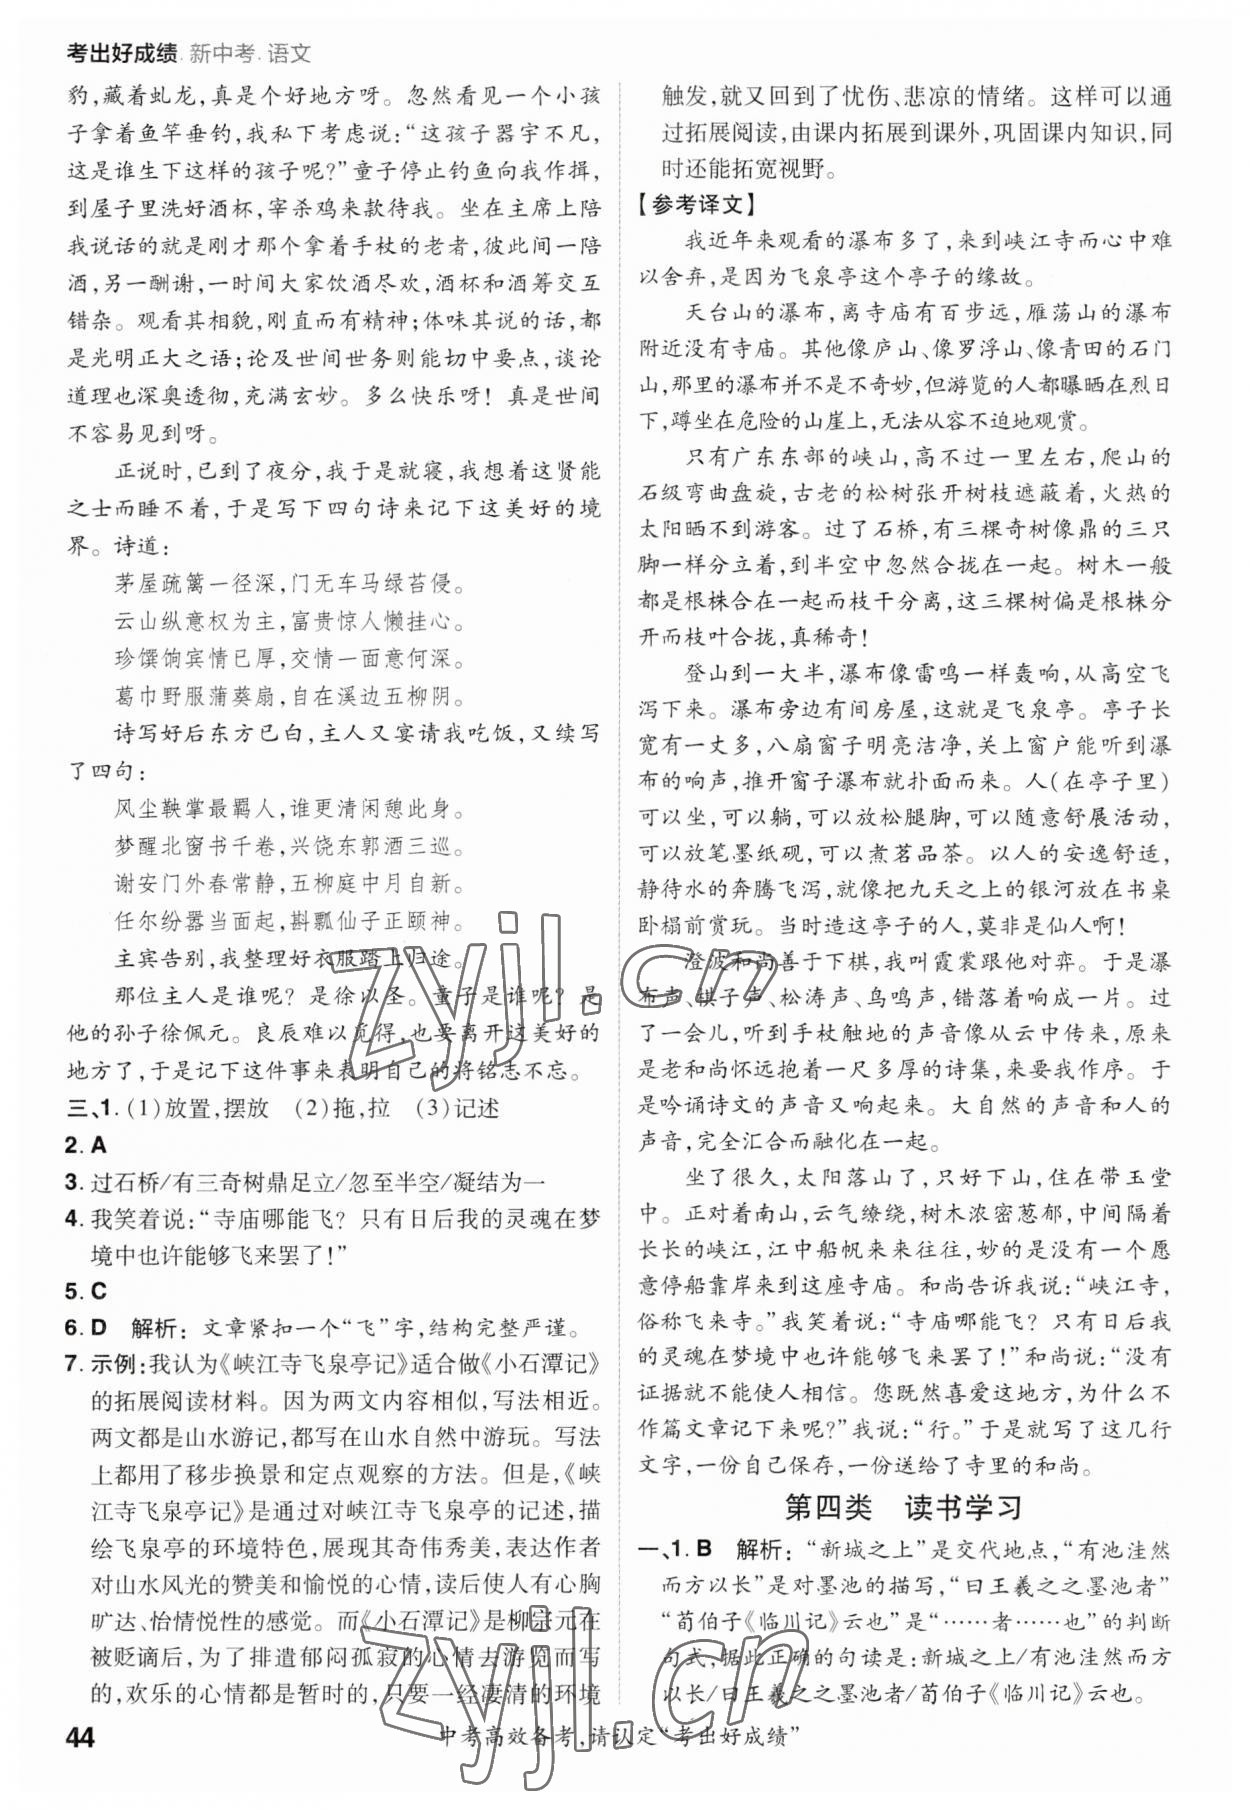 考出好成绩.新中考.语文
豹,藏着虬龙,真是个好地方呀。忽然看见一个小孩
子拿着鱼竿垂钓,我私下考虑说:“这孩子器宇不凡,
是谁生下这样的孩子呢?”童子停止钓鱼向我作揖,
到屋子里洗好酒杯,宰杀鸡来款待我。坐在主席上陪
我说话的就是刚才那个拿着手杖的老者,彼此间一陪
酒,另一酬谢,一时间大家饮酒尽欢,酒杯和酒筹交互
错杂。观看其相貌,刚直而有精神;体味其说的话,都
是光明正大之语;论及世间世务则能切中要点,谈论
道理也深奥透彻,充满玄妙。多么快乐呀!真是世间
不容易见到呀。
正说时,已到了夜分,我于是就寝,我想着这贤能
之士而睡不着,于是写下四句诗来记下这美好的境
界。诗道:
茅屋疏篱一径深,门无车马绿苔侵。
云山纵意权为主,富贵惊人懒挂心。
珍馔饷宾情已厚,交情一面意何深。
葛巾野服蒲葵扇,自在溪边五柳阴。
诗写好后东方已白,主人又宴请我吃饭,又续写
了四句:
风尘鞅掌最羁人,谁更清闲憩此身。
梦醒北窗书千卷,兴饶东郭酒三巡。
谢安门外春常静,五柳庭中月自新。
任尔纷嚣当面起,斟瓢仙子正颐神。
主宾告别,我整理好衣服踏上归途。
那位主人是谁呢?是徐以圣。童子是谁呢?是
他的孙子徐佩元。良辰难以觅得,也要离开这美好的
地方了,于是记下这件事来表明自己的将铭志不忘。
三、1.(1)放置,摆放 (2)拖,拉 (3)记述
2. A
3. 过石桥/有三奇树鼎足立/忽至半空/凝结为一
4. 我笑着说:“寺庙哪能飞?只有日后我的灵魂在梦
境中也许能够飞来罢了!”
5. C
6. D 解析:文章紧扣一个“飞”字,结构完整严谨。
7. 示例:我认为《峡江寺飞泉亭记》适合做《小石潭记》
的拓展阅读材料。因为两文内容相似,写法相近。
两文都是山水游记,都写在山水自然中游玩。写法
上都用了移步换景和定点观察的方法。但是,《峡
江寺飞泉亭记》是通过对峡江寺飞泉亭的记述,描
绘飞泉亭的环境特色,展现其奇伟秀美,表达作者
对山水风光的赞美和愉悦的心情,读后使人有心胸
旷达、怡情悦性的感觉。而《小石潭记》是柳宗元在
被贬谪后,为了排遣郁闷孤寂的心情去游览而写
的,欢乐的心情都是暂时的,只要一经凄清的环境
触发,就又回到了忧伤、悲凉的情绪。这样可以通
过拓展阅读,由课内拓展到课外,巩固课内知识,同
时还能拓宽视野。
【参考译文】
我近年来观看的瀑布多了,来到峡江寺而心中难
以舍弃,是因为飞泉亭这个亭子的缘故。
天台山的瀑布,离寺庙有百步远,雁荡山的瀑布
附近没有寺庙。其他像庐山、像罗浮山、像青田的石门
山,那里的瀑布并不是不奇妙,但游览的人都曝晒在烈日
下,蹲坐在危险的山崖上,无法从容不迫地观赏。
只有广东东部的峡山,高不过一里左右,爬山的
石级弯曲盘旋,古老的松树张开树枝遮蔽着,火热的
太阳晒不到游客。过了石桥,有三棵奇树像鼎的三只
脚一样分立着,到半空中忽然合拢在一起。树木一般
都是根株合在一起而枝干分离,这三棵树偏是根株分
开而枝叶合拢,真稀奇!
登山到一大半,瀑布像雷鸣一样轰响,从高空飞
泻下来。瀑布旁边有间房屋,这就是飞泉亭。亭子长
宽有一丈多,八扇窗子明亮洁净,关上窗户能听到瀑
布的响声,推开窗子瀑布就扑面而来。人(在亭子里)
可以坐,可以躺,可以放松腿脚,可以随意舒展活动,
可以放笔墨纸砚,可以煮茗品茶。以人的安逸舒适,
静待水的奔腾飞泻,就像把九天之上的银河放在书桌
卧榻前赏玩。当时造这亭子的人,莫非是仙人啊!
澄波和尚善于下棋,我叫霞裳跟他对弈。于是瀑
布声、棋子声、松涛声、鸟鸣声,错落着响成一片。过
了一会儿,听到手杖触地的声音像从云中传来,原来
是老和尚怀远抱着一尺多厚的诗集,来要我作序。于
是吟诵诗文的声音又响起来。大自然的声音和人的
声音,完全汇合而融化在一起。
坐了很久,太阳落山了,只好下山,住在带玉堂
中。正对着南山,云气缭绕,树木浓密葱郁,中间隔着
长长的峡江,江中船帆来来往往,妙的是没有一个愿
意停船靠岸来到这座寺庙。和尚告诉我说:“峡江寺,
俗称飞来寺。”我笑着说:“寺庙哪能飞?只有日后我
的灵魂在梦境中也许能够飞来罢了!”和尚说:“没有
证据就不能使人相信。您既然喜爱这地方,为什么不
作篇文章记下来呢?”我说:“行。”于是就写了这几行
文字,一份自己保存,一份送给了寺里的和尚。
第四类 读书学习
一、1. B 解析:“新城之上”是交代地点,“有池洼然
而方以长”是对墨池的描写,“曰王羲之之墨池者”
“荀伯子《临川记》云也”是“……者……也”的判断
句式,据此正确的句读是:新城之上/有池洼然而方
以长/曰王羲之之墨池者/荀伯子《临川记》云也。
44
中考高效备考,请认定“考出好成绩”
zyjl.cn
zyjl.cn